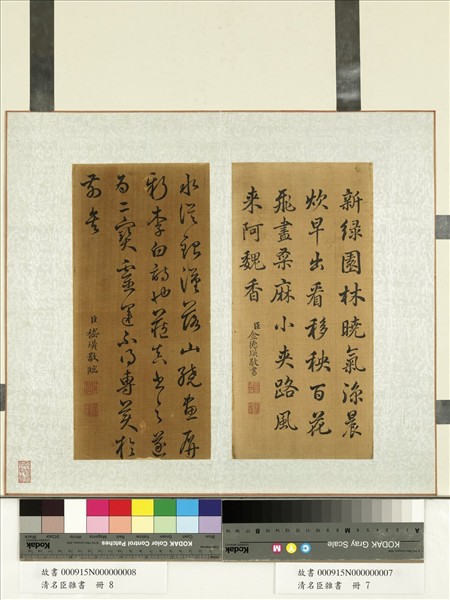 新綠園林曉氣涼晨
炊早出看移秧百花
飛盡桑麻小夾路風
来阿魏香
臣金德瑛敬書
水從銀漢落山繞畫屏
新李白詩也書之遂
為二寶靈運不得專美於
前矣
臣嵇璜敬臨
KODAK Color Control Patches
Kodak
KODAK Gray Scale
C Y M
Kodak
故書 000915N000000008
清名臣雜書 冊 8
故書 000915N000000007
清名臣雜書 冊 7